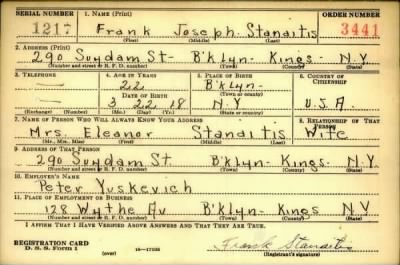 SERIAL NUMBER 1. NAME (Print) ORDER NUMBER
1217 Frank Joseph Stanaitis 3441
(First) (Middle) (Last)
2. ADDRESS (Print)
290 Suydam St- B'klyn- Kings- N.Y.
(Number and street or R. F. D. number) (Town) (County) (State)
3. TELEPHONE 4. AGE IN YEARS 5. PLACE OF BIRTH 6. COUNTRY OF CITIZENSHIP
— 22 B'klyn-
(Town or county)
DATE OF BIRTH
— 3 22 18 N.Y U.S.A.
(Exchange) (Number) (Mo.) (Day) (Yr.) (State or country)
7. NAME OF PERSON WHO WILL ALWAYS KNOW YOUR ADDRESS 8. RELATIONSHIP OF THAT PERSON
Mrs. Eleanor Stanaitis Wife
(Mr., Mrs., Miss) (First) (Middle) (Last)
9. ADDRESS OF THAT PERSON
290 Suydam St. B'klyn- Kings- N.Y.
(Number and street or R. F. D. number) (Town) (County) (State)
10. EMPLOYER'S NAME
Peter Yuskevich
11. PLACE OF EMPLOYMENT OR BUSINESS
128 Wythe Av B'klyn- Kings NY
(Number and street or R. F. D. number) (Town) (County) (State)
I AFFIRM THAT I HAVE VERIFIED ABOVE ANSWERS AND THAT THEY ARE TRUE.
REGISTRATION CARD
D. S. S. Form 1 (over) 16—17105 Frank Stanaitis
(Registrant's signature)